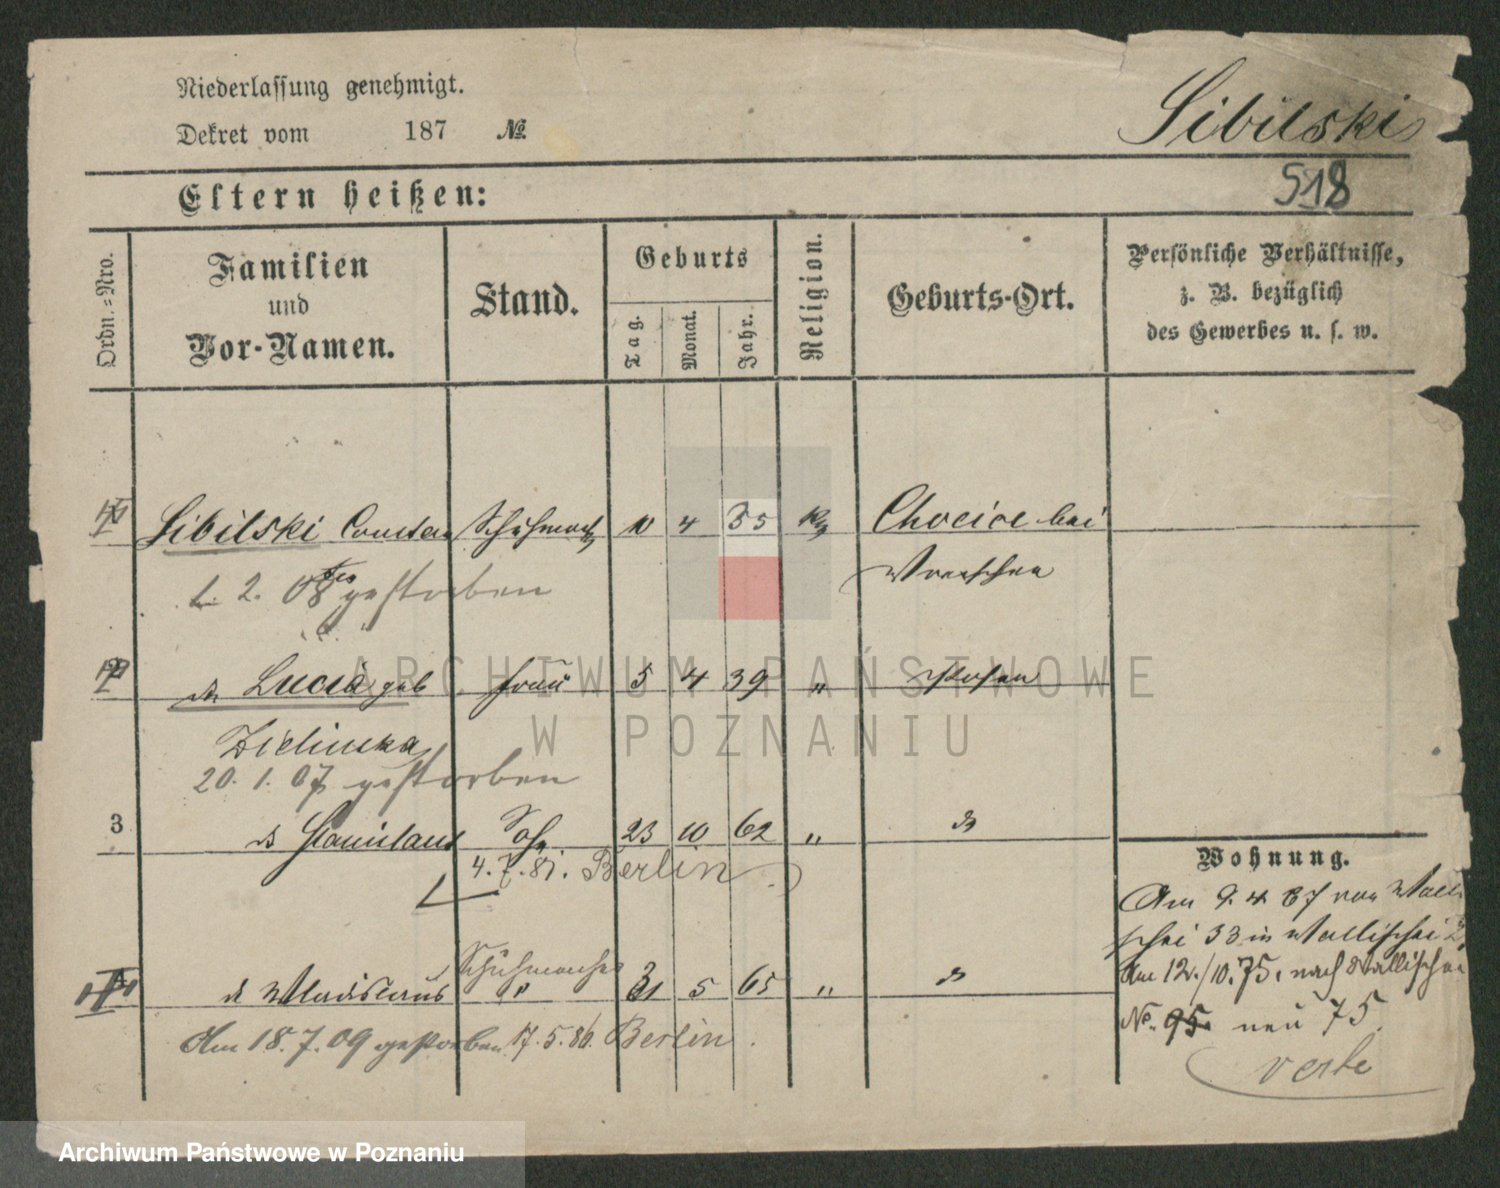 Niederlassung genehmigt.
Dekret vom 187 №
Sibilski
518
Eltern heißen:
Ordn.=Nro.
Familien
und
Vor-Namen.
Stand.
Geburts
Tag.
Monat.
Jahr.
Religion.
Geburts-Ort.
Persönliche Verhältnisse,
z. B. bezüglich
des Gewerbes u. s. w.
Sibilski 10 4 35 Chocice bei
Wreschen
1. 2. 08 gestorben
Lucia geb Frau 5 4 39 " Posen
Zielinska
20. 1. 07 gestorben
3 Stanislaus Sohn 23 10 62 "
4. 7. 81. Berlin
Wladislaus Schuhmacher 31 5 65 "
Am 18. 7. 09 gestorben 17. 5. 86. Berlin.
Wohnung.
Am 9. 4 67 von Walli
schei 33 in Wallischei 2
Am 12./10. 75. nach Wallischei
No. 95. neu 75.
ARCHIWUM PAŃSTWOWE
W POZNANIU
Archiwum Państwowe w Poznaniu